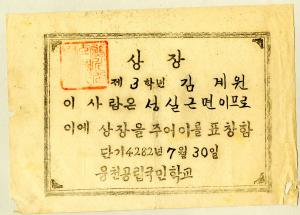 상장
제 3학년 김 계원
이 사람은 성실근면이므로
이에 상장을 주어이를 표창함
단기4282년 7월 30일
웅천공립국민학교